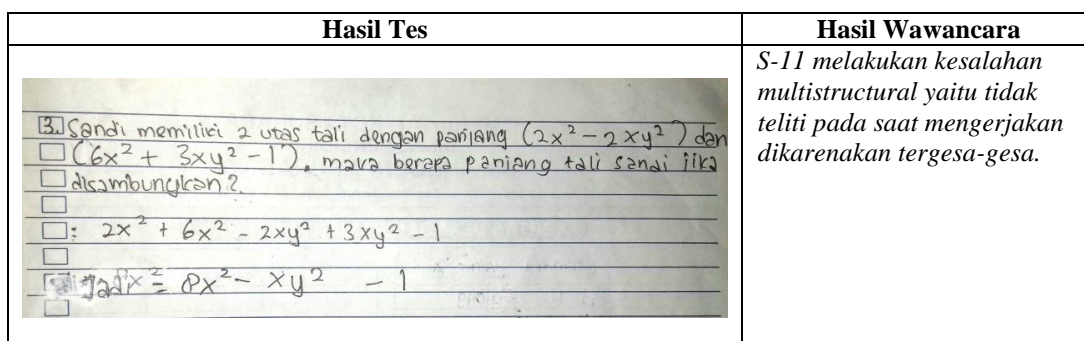 Hasil Tes
Hasil Wawancara
3. Sandi memiliki 2 utas tali dengan panjang (2x² - 2xy²) dan
(6x² + 3xy² - 1), maka berapa panjang tali sandi jika
disambungkan?
: 2x² + 6x² - 2xy² + 3xy² - 1
Jadi = 8x² - xy² - 1
S-11 melakukan kesalahan
multistructural yaitu tidak
teliti pada saat mengerjakan
dikarenakan tergesa-gesa.